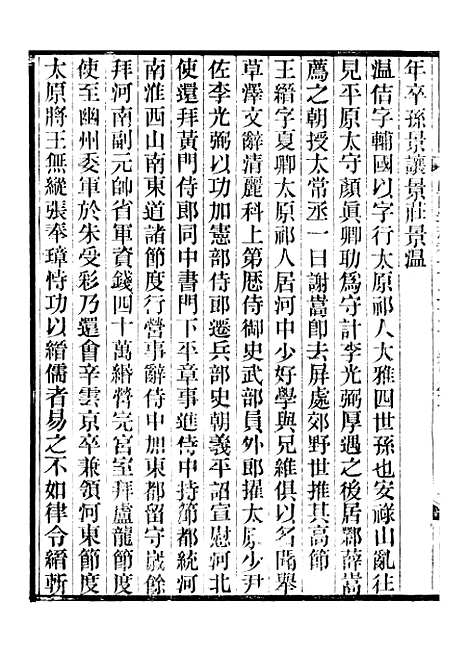 年卒孫景讓景莊景溫
温佶字輔國以字行太原祁人大雅四世孫也安祿山亂往
見平原太守顏眞卿助爲守計李光弼厚遇之後居鄴薛嵩
薦之朝授太常丞一日謝嵩卽去屏處郊野世推其高節
王縉字夏卿太原祁人居河中少好學與兄維俱以名聞舉
草澤文辭清麗科上第歷侍御史武部員外郎擢太原少尹
佐李光弼以功加憲部侍郎遷兵部史朝義平詔宣慰河北
使還拜黃門侍郎同中書門下平章事進侍中持節都統河
南淮西山南東道諸節度行營事辭侍中加東都留守歲餘
拜河南副元帥省軍資錢四十萬緡營完宮室拜盧龍節度
使至幽州委軍於朱受彩乃還會辛雲京卒兼領河東節度
太原將王無縱張奉璋恃功以縉儒者易之不如律令縉斬